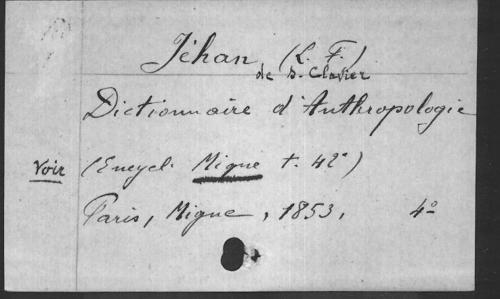 Jéhan (L. F.)
de S. Clavier
Dictionnaire d'Anthropologie
Voir (Encycl. Migne t. 42°)
Paris, Migne, 1853, 4°